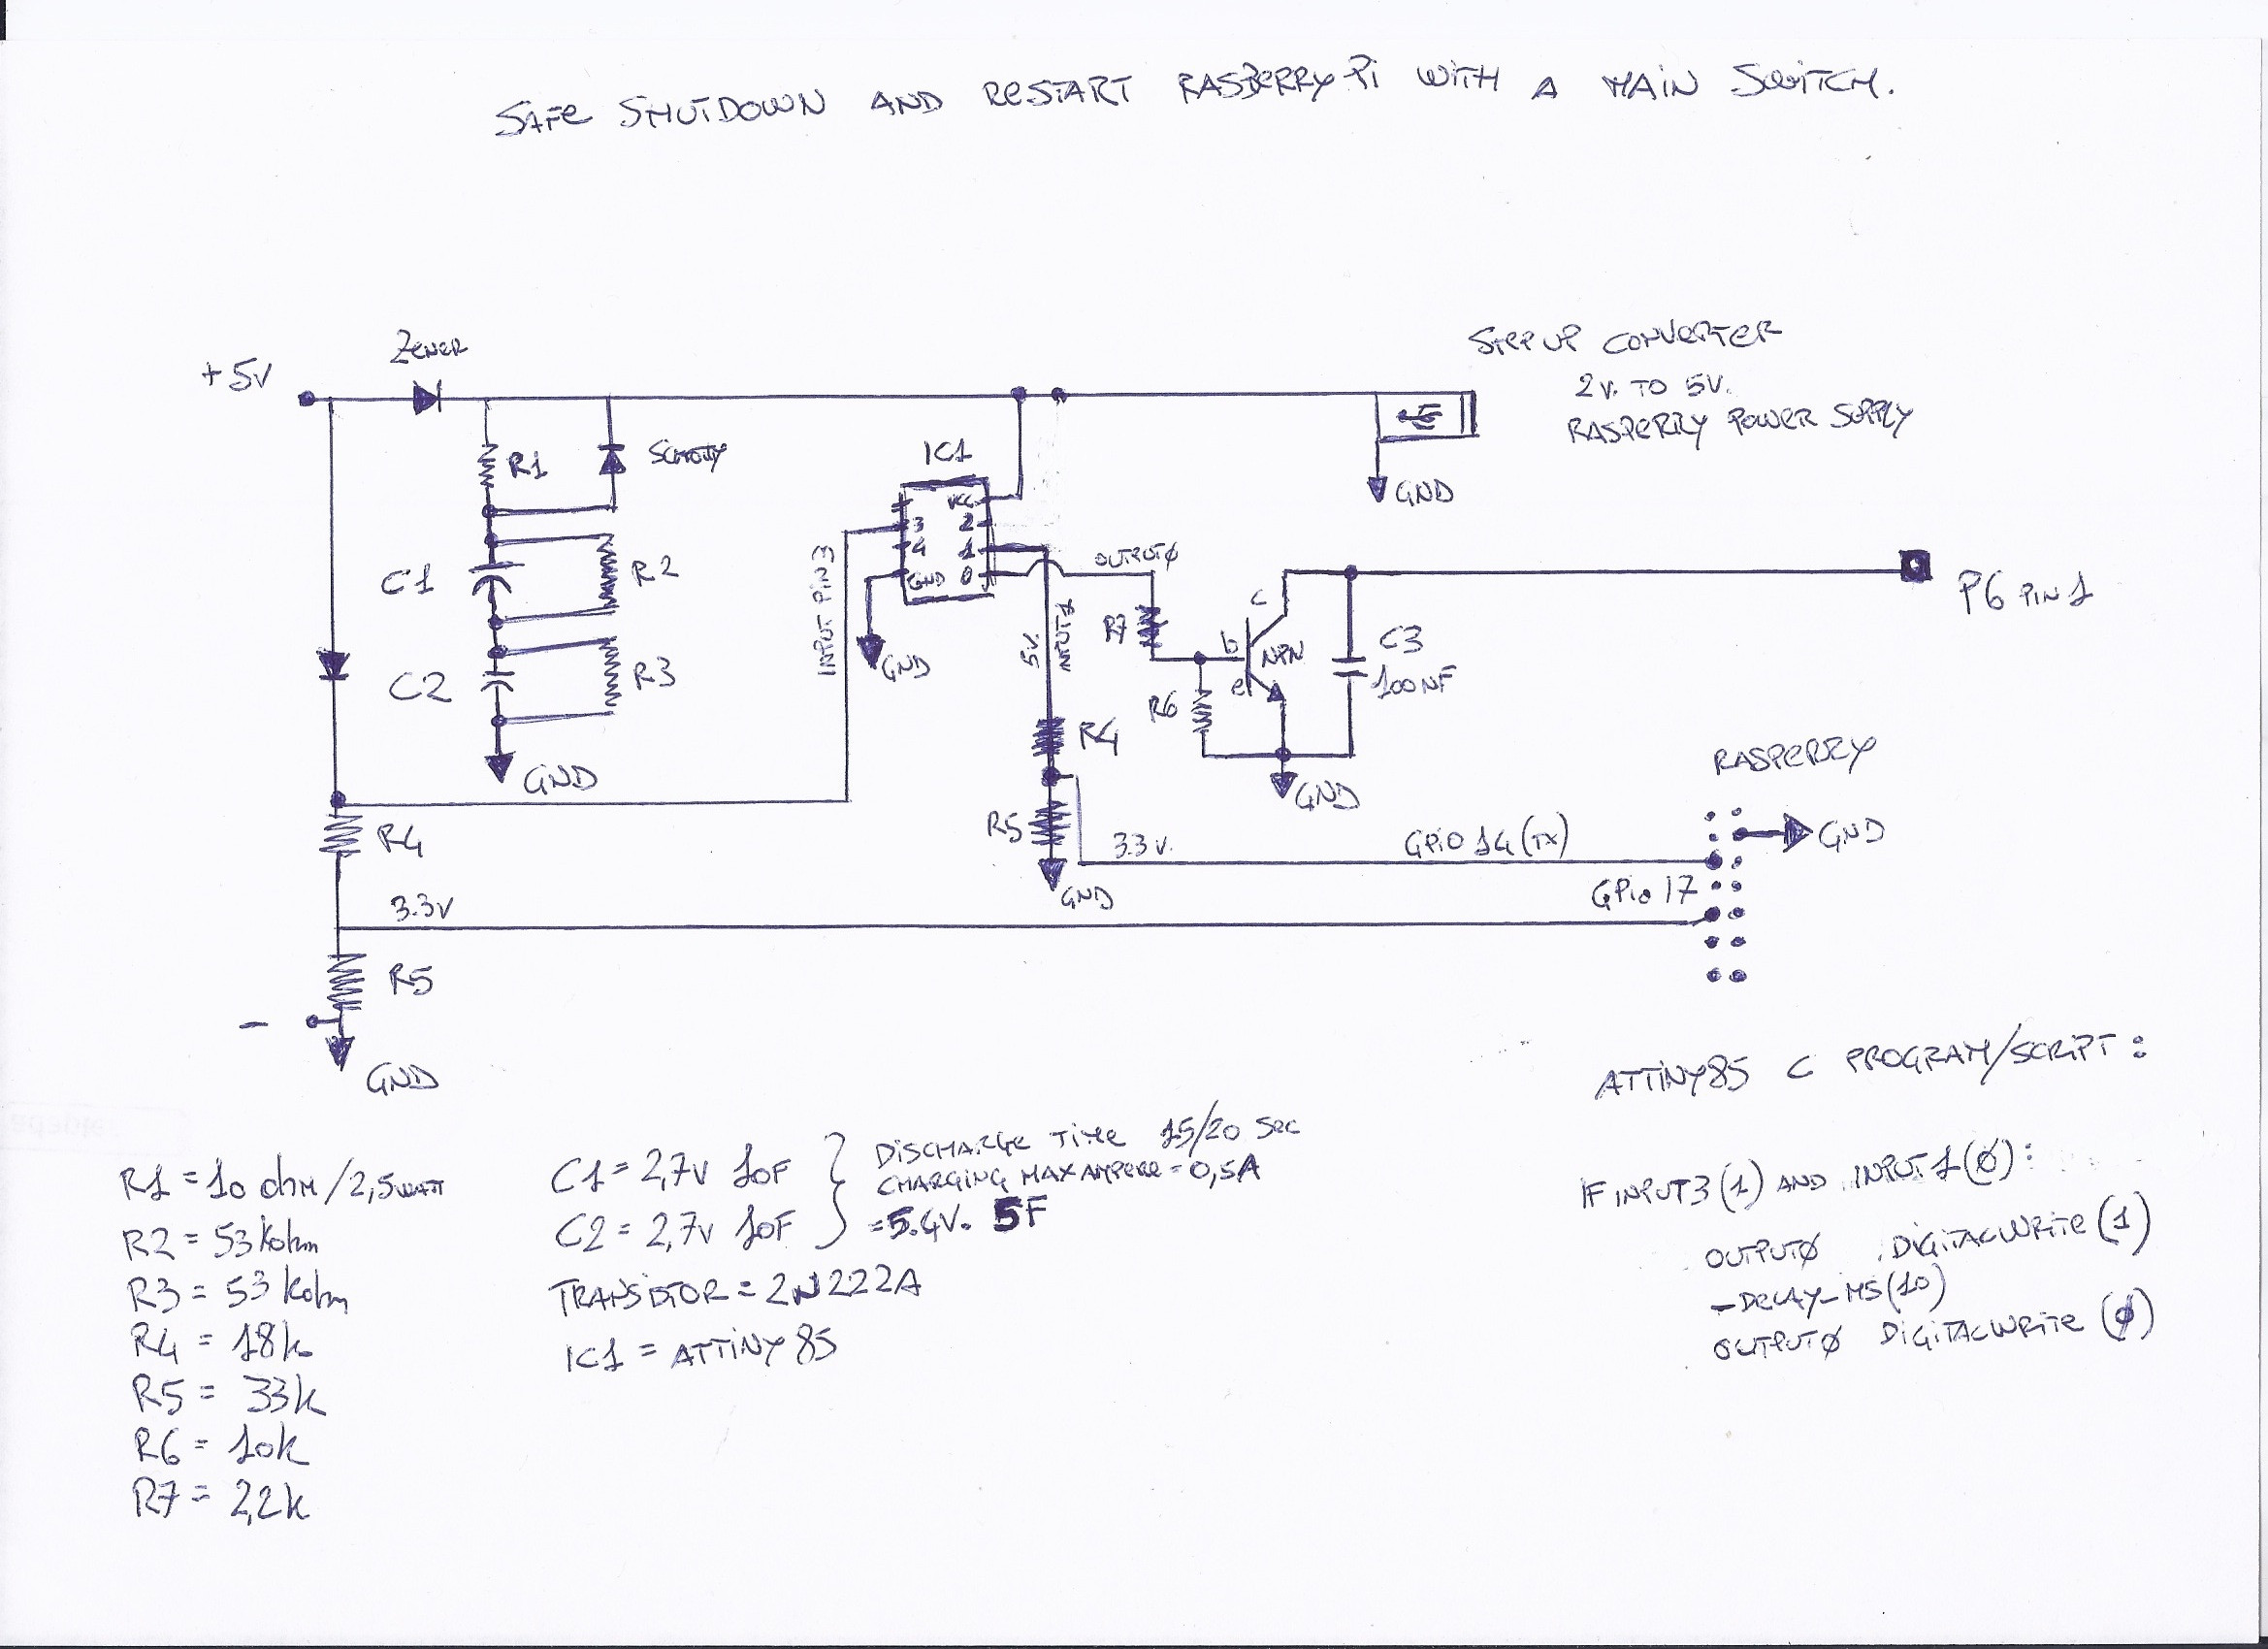 SAFE SHUTDOWN AND RESTART RASBERRY PI WITH A MAIN SWITCH.
STEP UP CONVERTER
2V. TO 5V.
RASPERRY POWER SUPPLY
Zener
+5V
R1
SCHOTTY
IC1
VCC
3 2
4 1
GND 0
GND
C1
R2
C2
R3
GND
INPUT PIN 3
GND
5V.
INPUT 1
OUTPUT0
R7
R6
b
c
e
NPN
C3
100NF
GND
P6 PIN 1
R4
R5
GND
3.3V.
GPIO 14 (TX)
GPIO 17
RASPERRY
GND
R4
3.3V
R5
-
GND
R1 = 10 ohm/2,5watt
R2 = 53kohm
R3 = 53kohm
R4 = 18k
R5 = 33k
R6 = 10k
R7 = 2,2k
C1 = 2,7V 10F
C2 = 2,7V 10F
DISCHARGE TIME 15/20 SEC
CHARGING MAX AMPERE = 0,5A
=5.4V. 5F
TRANSISTOR = 2N222A
IC1 = ATTINY 85
ATTINY85 C PROGRAM/SCRIPT:
IF INPUT3(1) AND INPUT1(0):
OUTPUT0 DIGITALWRITE(1)
-DELAY_MS(10)
OUTPUT0 DIGITALWRITE(0)